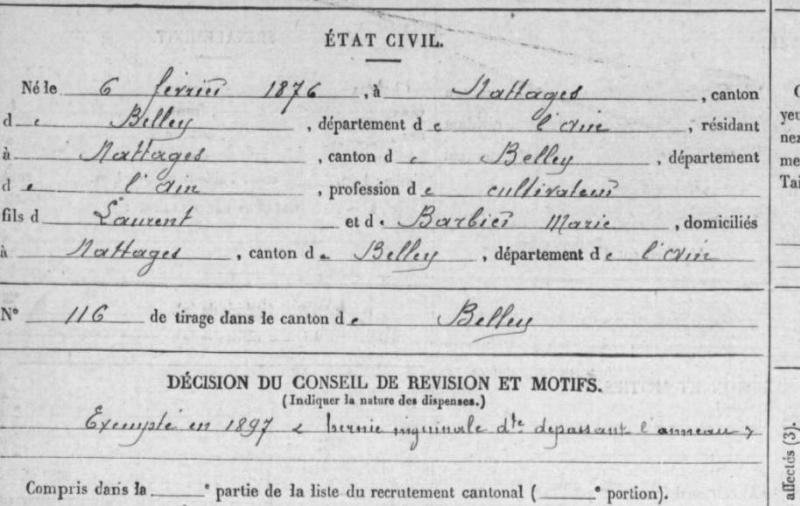 ÉTAT CIVIL.
Né le 6 février 1876, à Nattages, canton
de Belley, département de l'Ain, résidant
à Nattages, canton de Belley, département
de l'Ain, profession de cultivateur
fils d Laurent et de Barbier Marie, domiciliés
à Nattages, canton de Belley, département de l'Ain
N° 116 de tirage dans le canton de Belley
DÉCISION DU CONSEIL DE REVISION ET MOTIFS.
(Indiquer la nature des dispenses.)
Exempté en 1897 « hernie inguinale dte depassant l'anneau »
Compris dans la e partie de la liste du recrutement cantonal ( e portion).
C
yeu
nez
me
Tai
affectés (3).